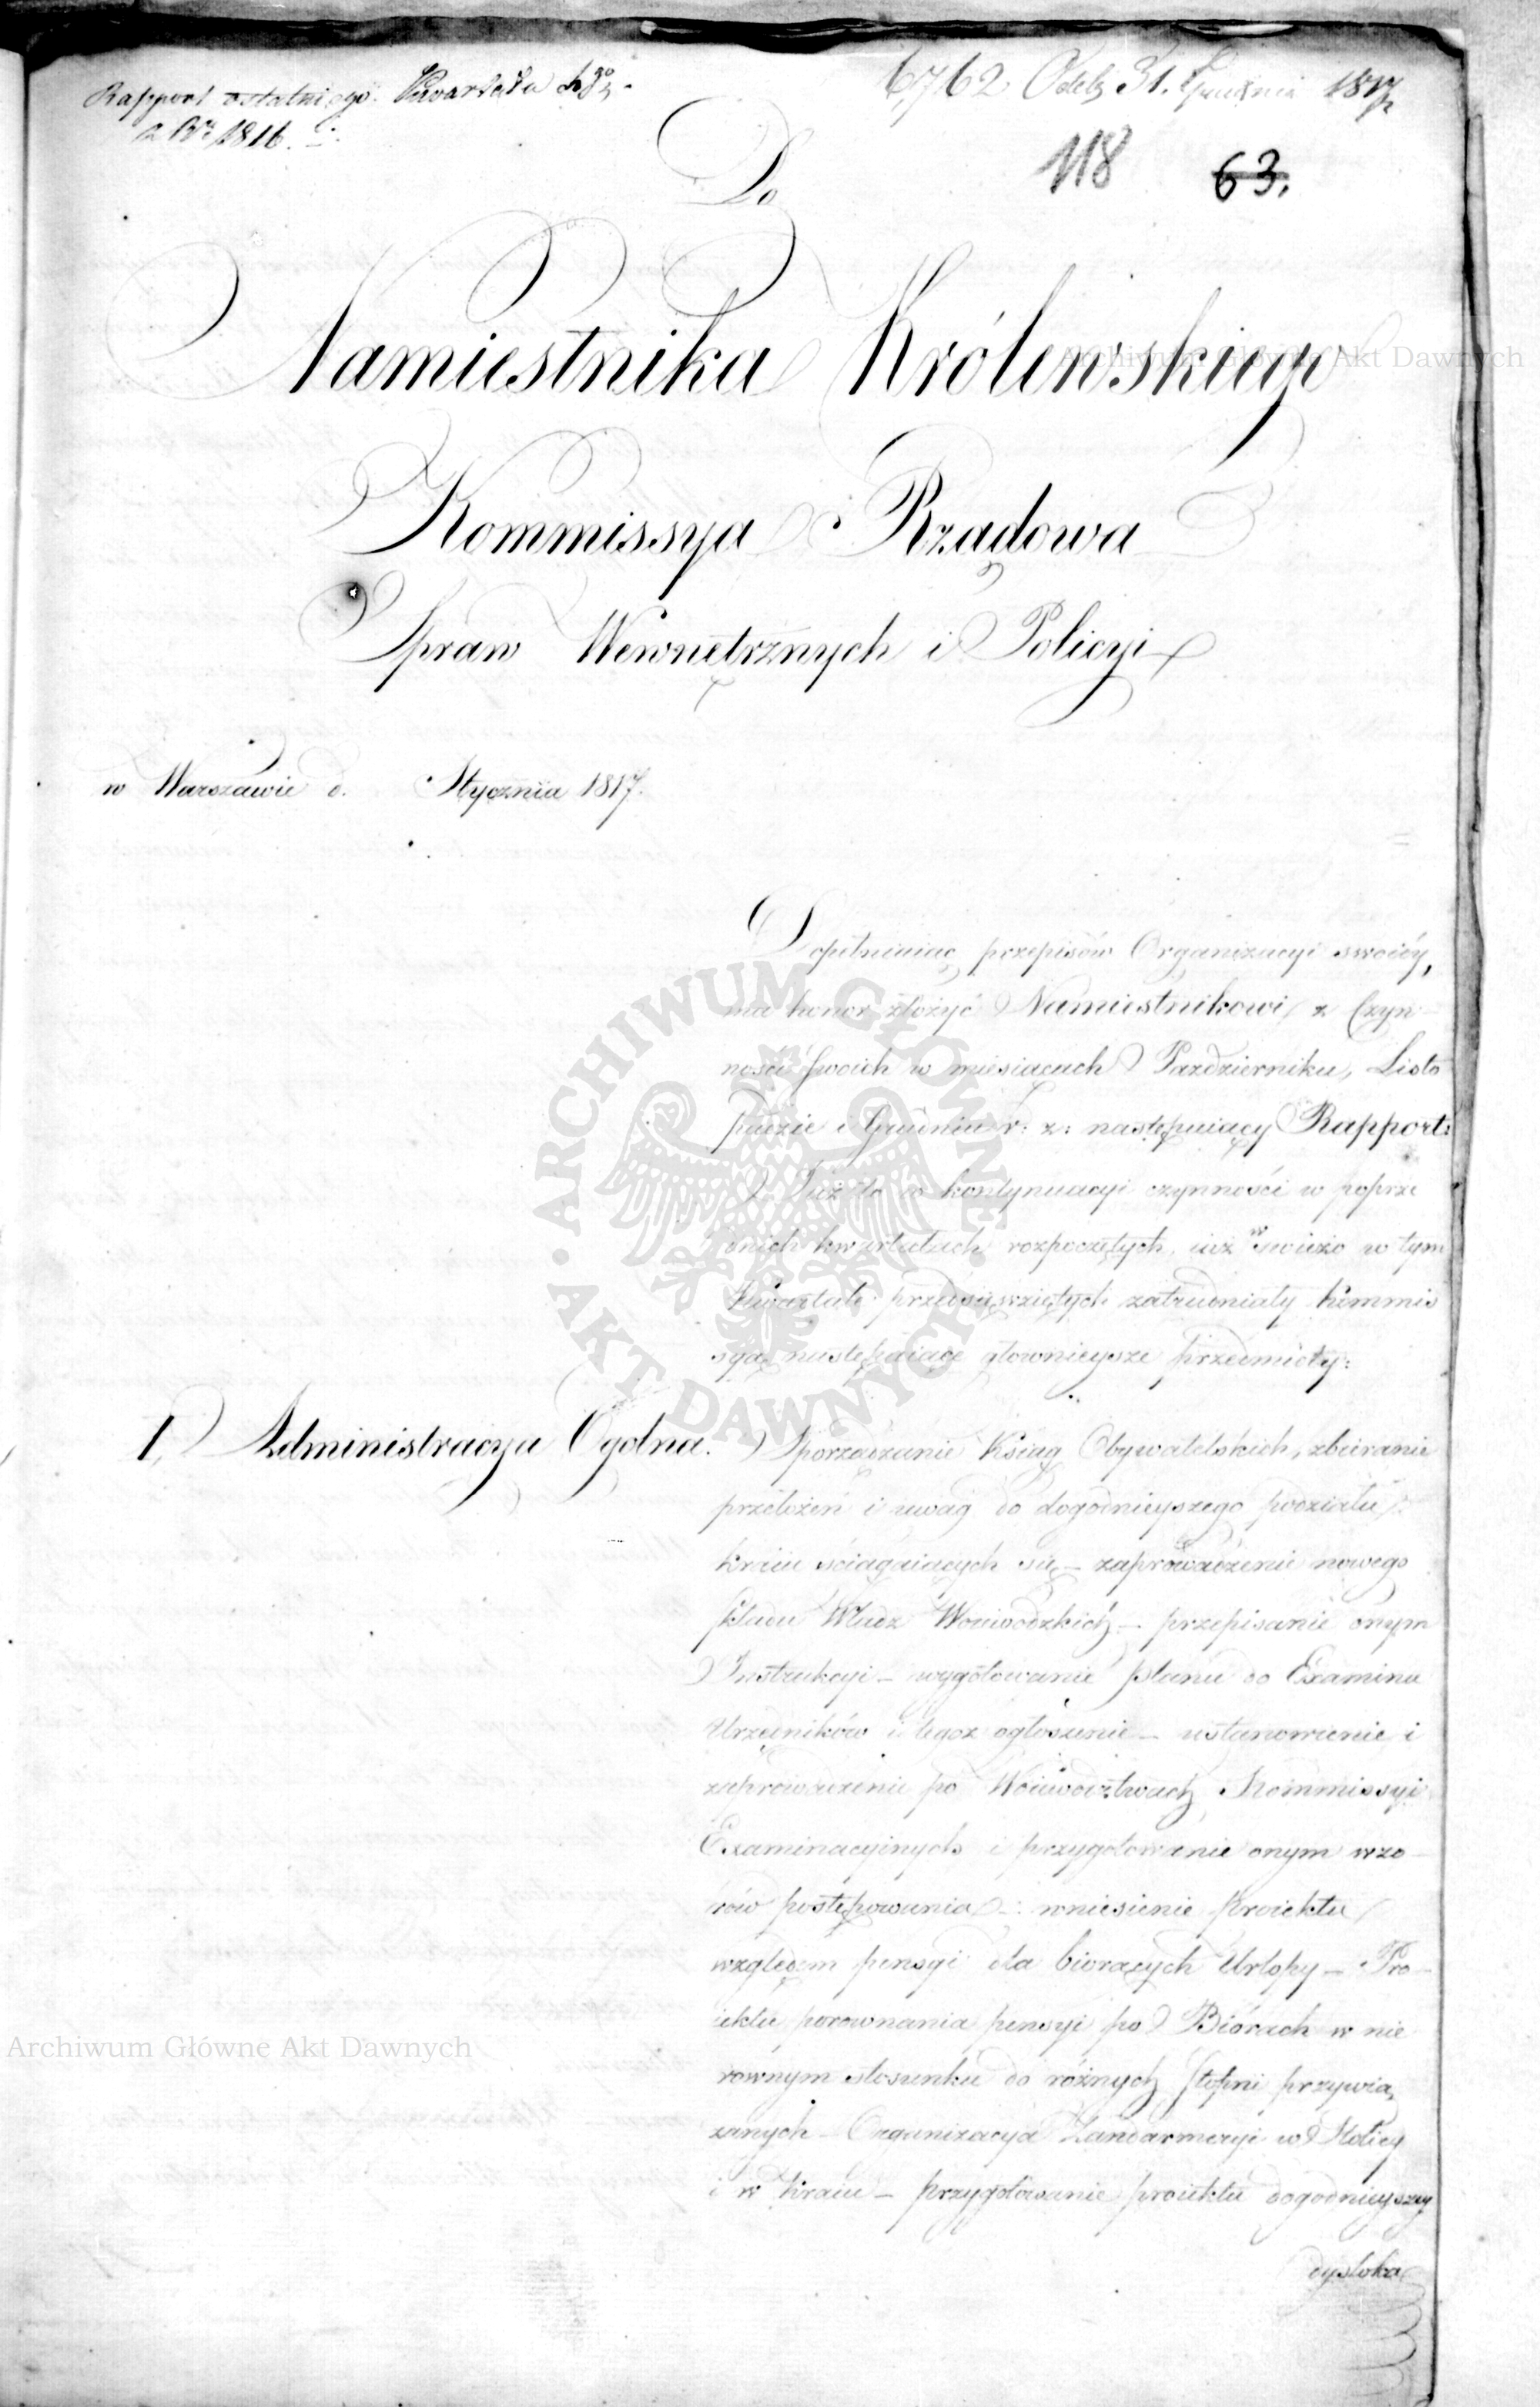 Rapport ostatniego Kwartału
z Ru 1816.
6762 Odeb 31. Grudnia 1817
118 63.
Do
Namiestnika Królewskiego
Kommissya Rządowa
Spraw Wewnętrznych i Policyi
w Warszawie d. Stycznia 1817.
Dopełniaiąc przepisów Organizacyi swoiéy,
ma honor złożyć Namiestnikowi z Czyn-
ności swoich w miesiącach Październiku, Listo
padzie i Grudniu r: z: następuiący Rapport:
Już to w kontynuacyi czynności w poprze
dnich kwartałach rozpoczętych, iuż w świeżo w tym
Kwartale przedsięwziętych zatrudniały Kommis
syą następuiące głownieysze przedmioty:
I, Administracya Ogolna.
Sporządzanie Xsiąg Obywatelskich, zbieranie
przełożeń i uwag do dogodnieyszego podziału
Kraiu ściągaiących się – zaprowadzenie nowego
składu Władz Woiewodzkich – przepisanie onym
Instrukcyi – wygotowanie planu do Examinu
Urzędników i tegoz ogłoszenie – ustanowienie i
zaprowadzenie po Woiewodztwach Kommissyi
Examinacyinych i przygotowanie onym wzo-
rów postępowania – wniesienie Proiektu
względem pensyi dla biorących Urlopy – Pro-
iektu porownania pensyi po Biórach w nie
rownym stosunku do różnych stopni przywią
zanych – Organizacya Żandarmeryi w Stolicy
i w Kraiu – przygotowanie proiektu dogodnieyszey
dysloka
Archiwum Główne Akt Dawnych
ARCHIWUM GŁÓWNE AKT DAWNYCH
Archiwum Główne Akt Dawnych